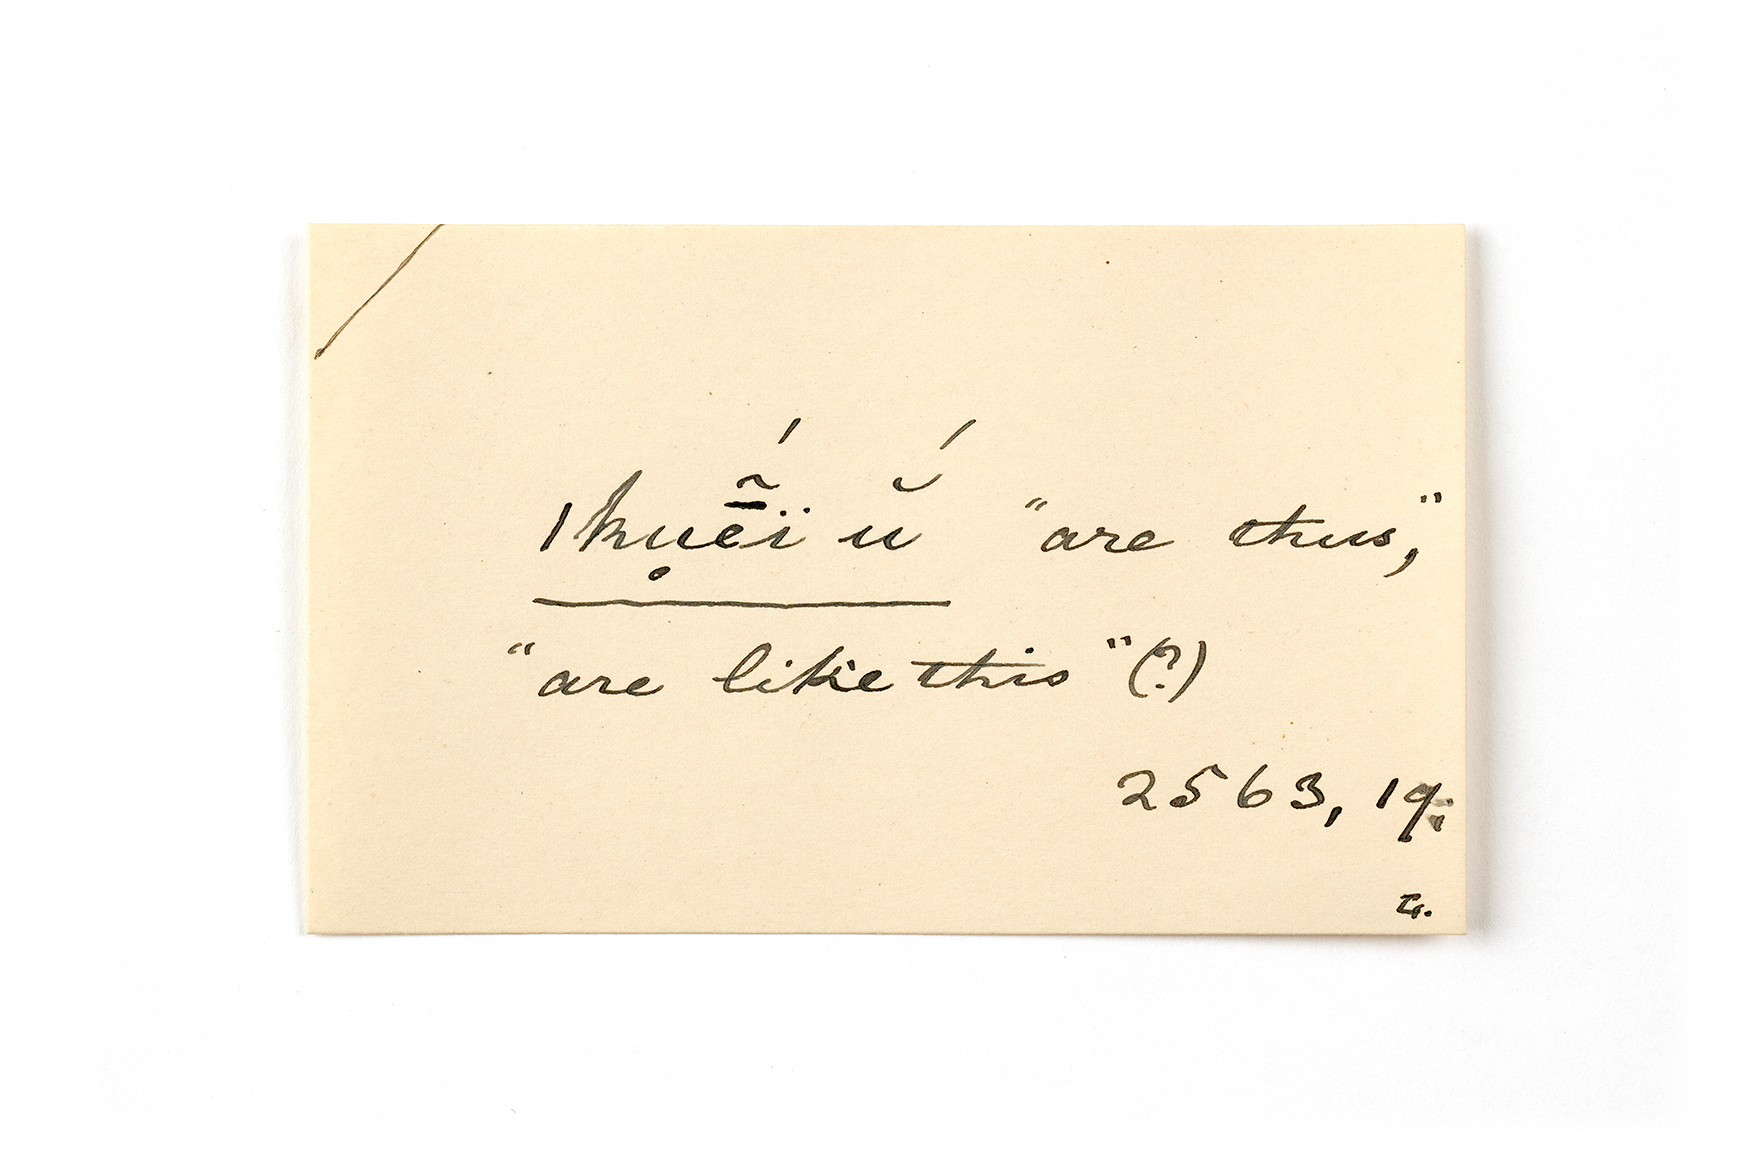 ıkụē̃́ï ŭ́ "are thus,"
"are like this" (?)
2563, 19.